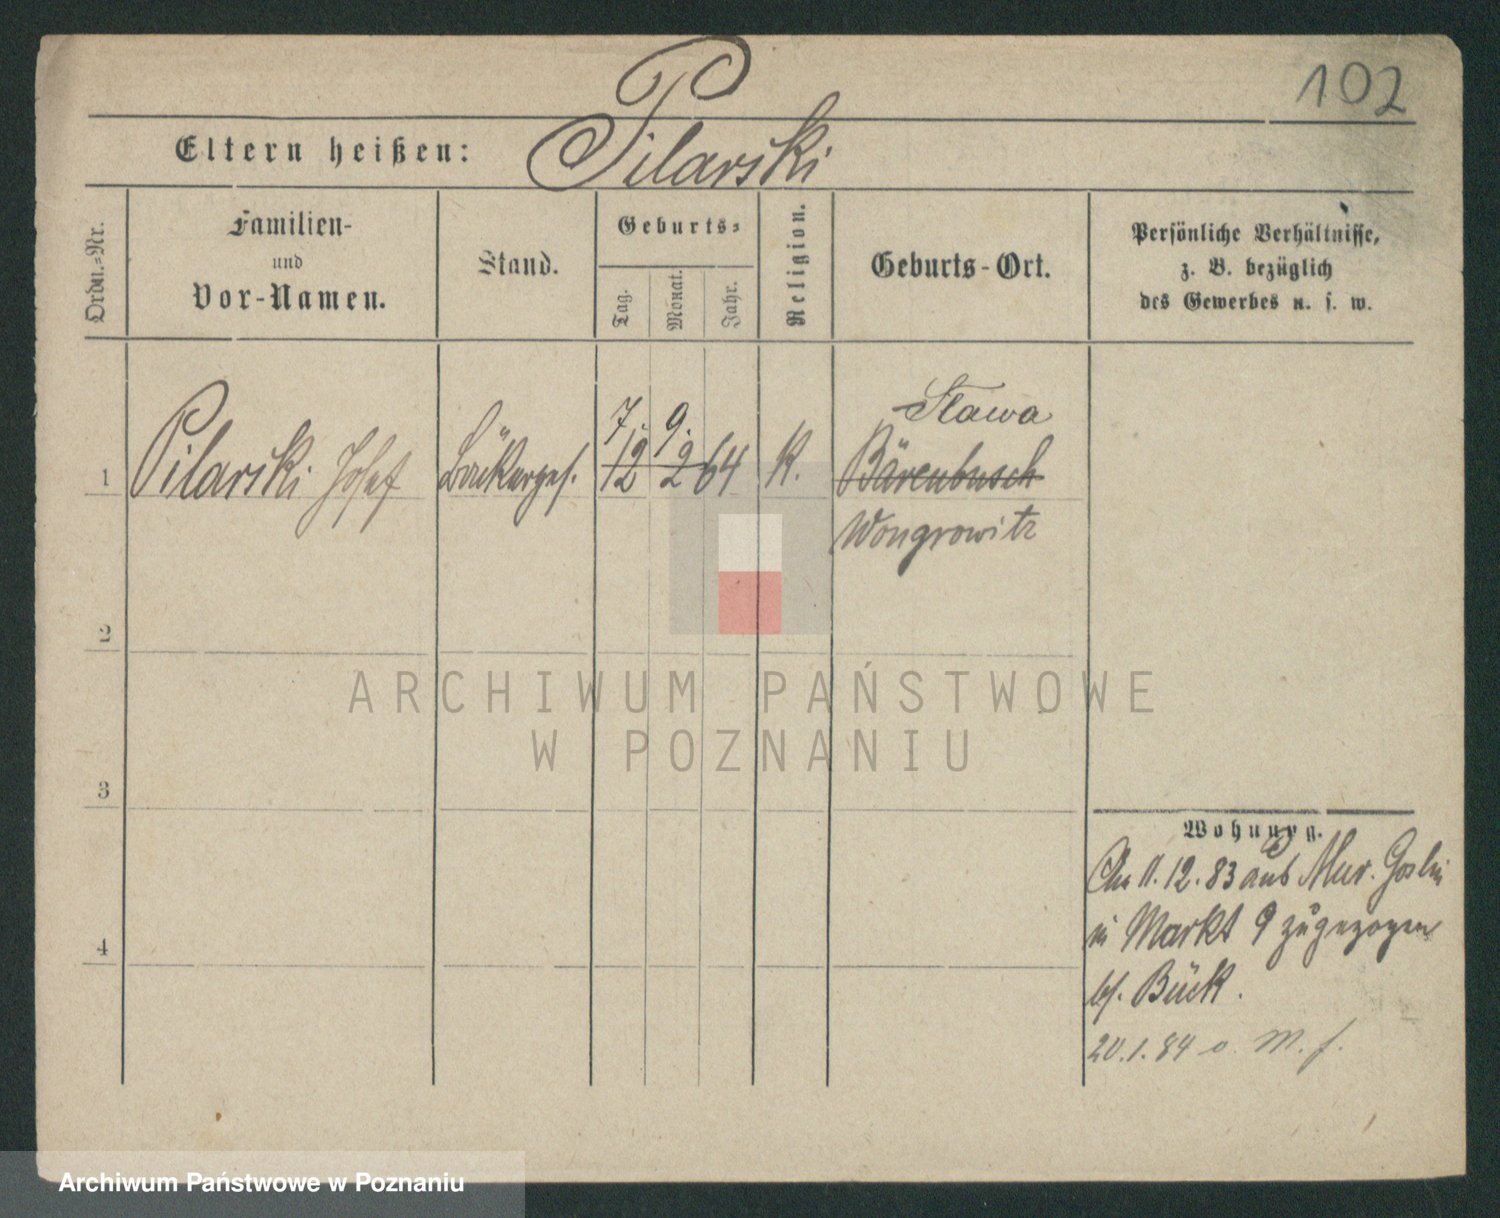 102
Eltern heißen: Pilarski
Ordn.=Nr.
Familien-
und
Vor-Namen.
Stand.
Geburts=
Tag.
Monat.
Jahr.
Religion.
Geburts-Ort.
Persönliche Verhältnisse,
z. B. bezüglich
des Gewerbes u. s. w.
7. 9. Slawa
1 Pilarski Josef Bäckerges. 12 2 64 K. Bärenbusch
Wongrowitz
2
ARCHIWUM PAŃSTWOWE
W POZNANIU
3
Wohnung.
11. 12. 83 aus Mur. Goslin
in Markt 9 zugezogen
bf. Bück.
20. 1. 84 o. M. f.
4
Archiwum Państwowe w Poznaniu